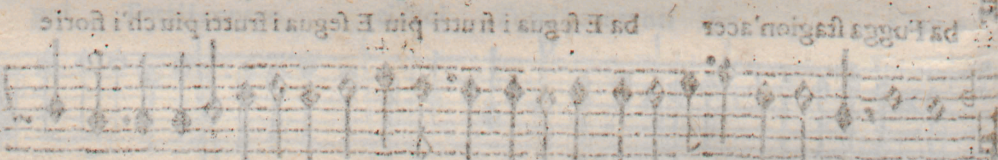 ba Fugga ſtagion'acer ba E ſegua i frutti piu E ſegua i frutti piu ch'i fiorie